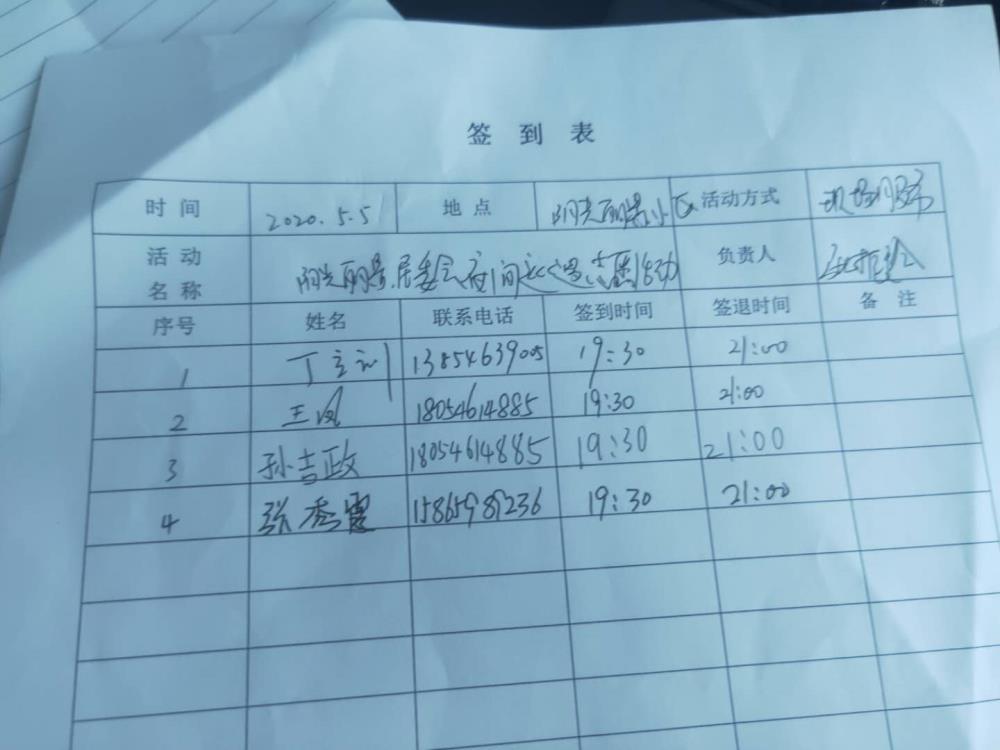 签到表
时间 2020.5.5 地点 阳光丽景小区 活动方式 现场服务
活动名称 阳光丽景居委会夜间 活动 负责人
序号 姓名 联系电话 签到时间 签退时间 备注
1 丁 13854639005 19:30 21:00
2 王凤 18054614885 19:30 21:00
3 孙吉政 18054614885 19:30 21:00
4 张秀 15865989236 19:30 21:00